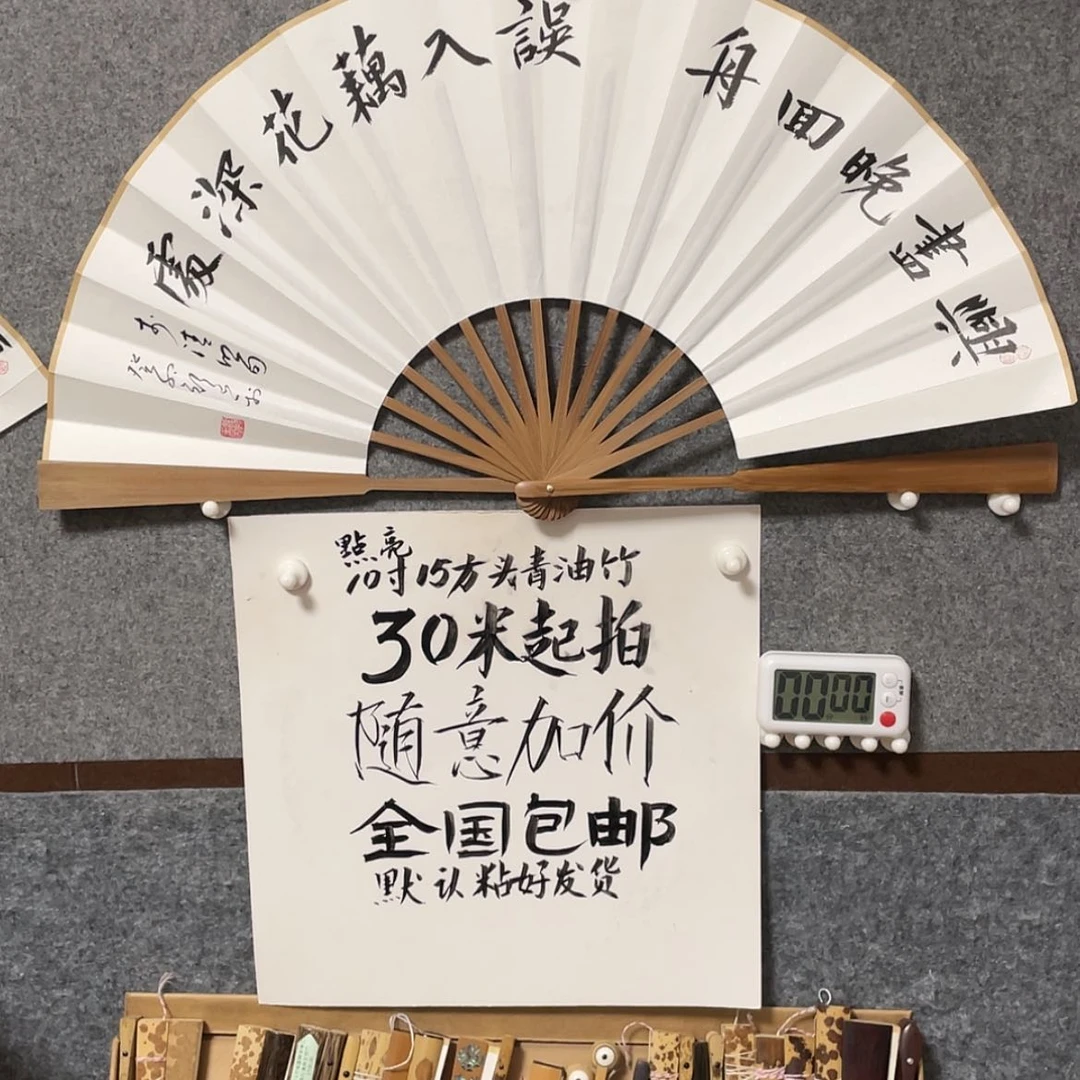 興盡晚回舟
誤入藕花深處
點亮
10寸15方头青油竹
30米起拍
随意加价
全国包邮
默认粘好发货
00:00